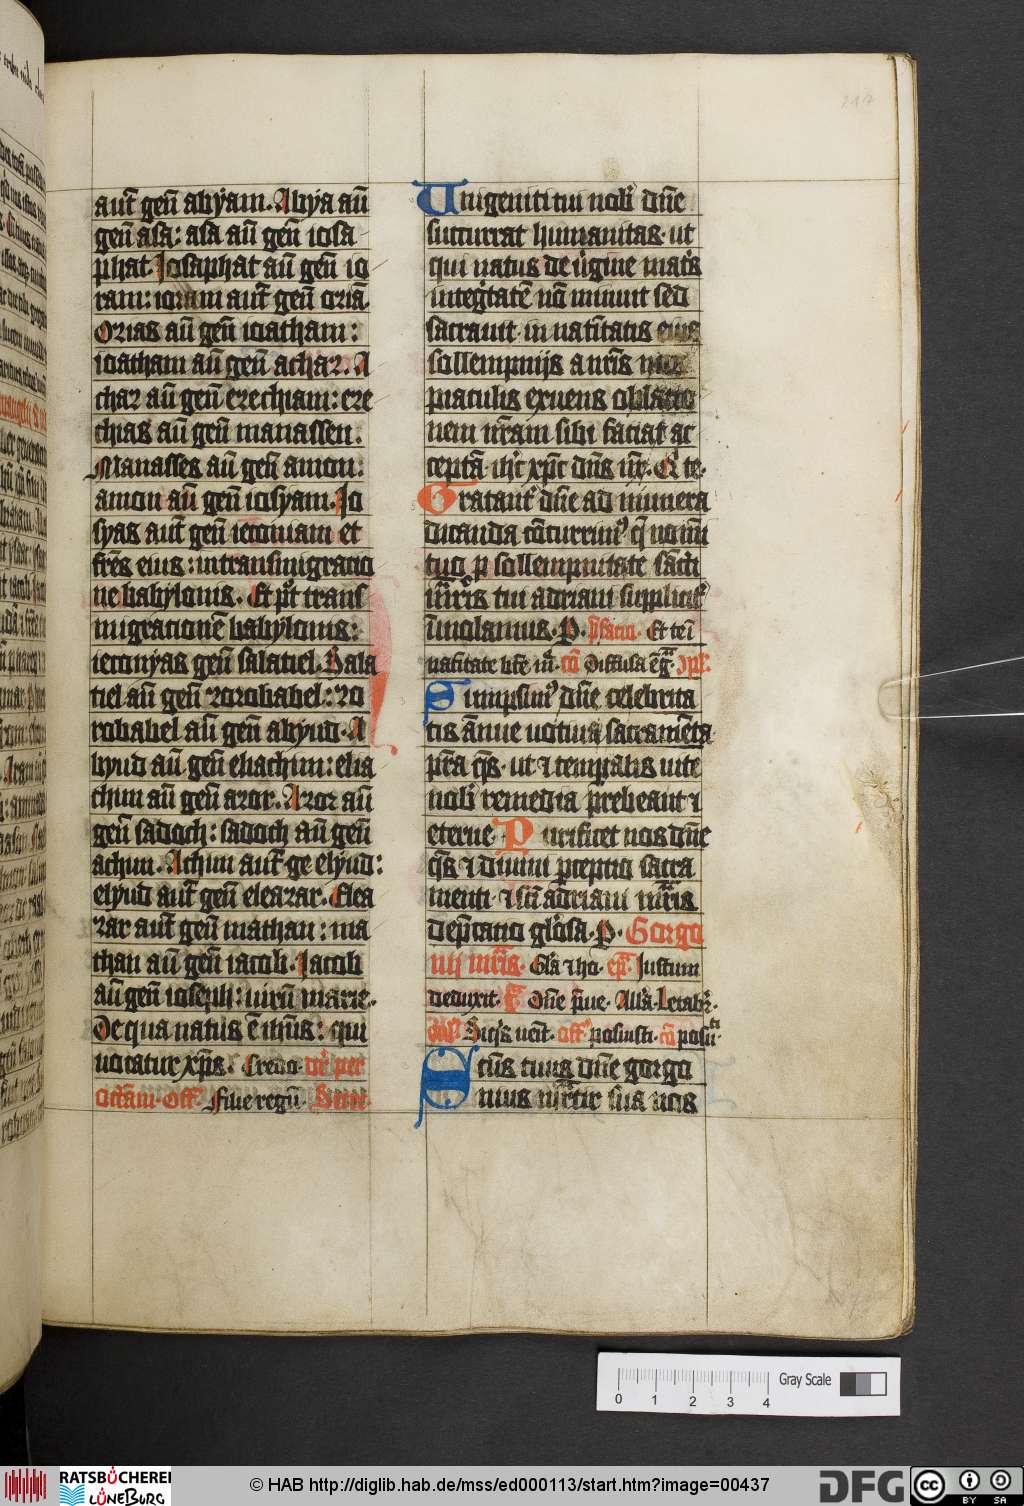 aut̄ genū abyam. Abya aū
genū asa: asa aū genū iosa
phat. Iosaphat aū genū io
ram: ioram aut̄ genū oriā.
Orias aū genū ioatham:
ioatham aū genū achaz. A
chaz aū genū ezechiam: eze
chias aū genū manassen.
Manasses aū genū amon:
amon aū genū iosyam. Io
syas aut̄ genū ieconiam et
frēs eius: in transmigracio
ne babylonis. Et pꝰt trans
migracionē babylonis:
ieconyas genū salatiel. Sala
tiel aū genū zorobabel: zo
robabel aū genū abyud. A
byud aū genū eliachim: elia
chim aū genū azor. Azor aū
genū sadoch: sadoch aū genū
achim. Achim aut̄ ge elyud:
elyud aut̄ genū eleazar. Elea
zar aut̄ genū mathan: ma
than aū genū iacob. Iacob
aū genū ioseph: uirū marie.
De qua natus ē ihūs: qui
uocatur xp̄s. Credo. dr̄ per
octām. Off. Filie regū. Secr̄.
Unigeniti tui nob̄ dn̄e
succurrat humanitas. ut
qui natus de ūgine matr̄s
inteḡtatē nō minuit sed
sacrauit. in natītatis eius
sollempnijs a nr̄is nos
piaculis exuens oblacio
nem nr̄am sibi faciat ac
ceptā. ihc̄ xp̄c dn̄s nr̄. Qͥ te.
Gratant̄ dn̄e ad munera
dicanda cōcurrimꝰ q̄ nomi
tuo ꝑ sollempnitate sācti
mr̄is tui adriani supplicit̄
īmolamus. P. p̄facio. Et te ī
natiītate bt̄e m̄. cō Diffusa ē gͣ.
Sumpsimꝰ dn̄e celebrita
tis ānue uotiua sacramēta
p̄ta q̄s. ut ⁊ temporalis uite
nob̄ remedia p̄beant ⁊
eterne. Purificet nos dn̄e
q̄s ⁊ diuini ꝑcepcio sacra
menti. ⁊ sc̄i adriani mr̄is
dep̄catio gl̄osa. P. Gorgo
nij mr̄is. Gl̄a ⁊ ho. ep̄la Iustum
deduxit. Dn̄e p̄ue. All̄a. Letab̄r.
Siq̄s ueīt. off. posuisti. cō posuīti
Sc̄us tuus dn̄e gorgo
nius mr̄tir sua nos
Gray Scale
0 1 2 3 4
RATSBÜCHEREI
LÜNEBURG
© HAB http://diglib.hab.de/mss/ed000113/start.htm?image=00437
DFG
cc
BY SA